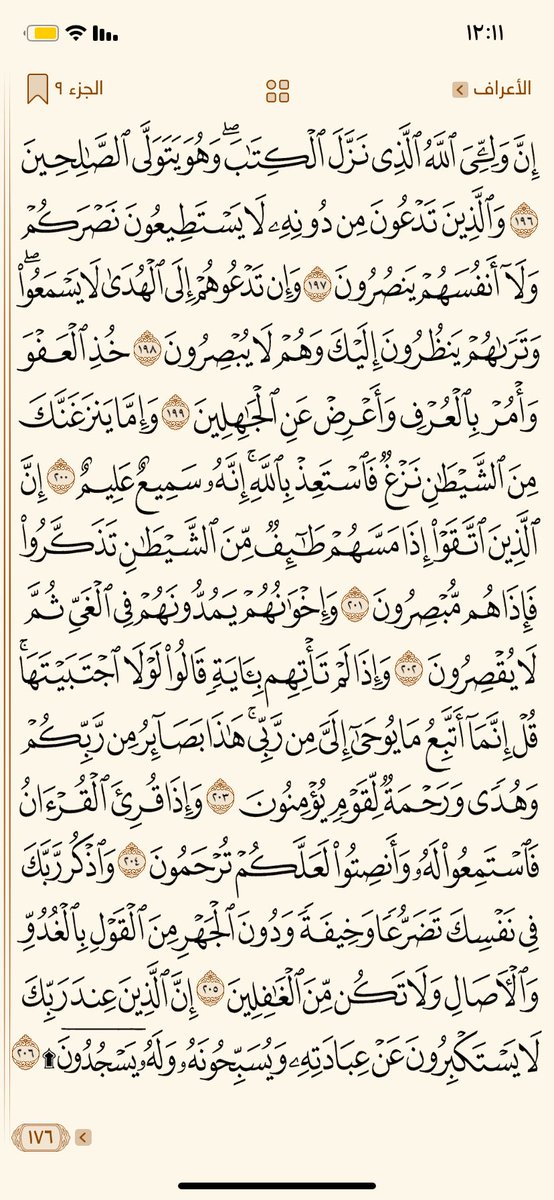 ١٢:١١
الأعراف
الجزء ٩
إِنَّ وَلِـِّۧيَ ٱللَّهُ ٱلَّذِي نَزَّلَ ٱلۡكِتَٰبَۖ وَهُوَ يَتَوَلَّى ٱلصَّٰلِحِينَ
١٩٦ وَٱلَّذِينَ تَدۡعُونَ مِن دُونِهِۦ لَا يَسۡتَطِيعُونَ نَصۡرَكُمۡ
وَلَآ أَنفُسَهُمۡ يَنصُرُونَ ١٩٧ وَإِن تَدۡعُوهُمۡ إِلَى ٱلۡهُدَىٰ لَا يَسۡمَعُواْۖ
وَتَرَىٰهُمۡ يَنظُرُونَ إِلَيۡكَ وَهُمۡ لَا يُبۡصِرُونَ ١٩٨ خُذِ ٱلۡعَفۡوَ
وَأۡمُرۡ بِٱلۡعُرۡفِ وَأَعۡرِضۡ عَنِ ٱلۡجَٰهِلِينَ ١٩٩ وَإِمَّا يَنزَغَنَّكَ
مِنَ ٱلشَّيۡطَٰنِ نَزۡغٞ فَٱسۡتَعِذۡ بِٱللَّهِۚ إِنَّهُۥ سَمِيعٌ عَلِيمٌ ٢٠٠ إِنَّ
ٱلَّذِينَ ٱتَّقَوۡاْ إِذَا مَسَّهُمۡ طَٰٓئِفٞ مِّنَ ٱلشَّيۡطَٰنِ تَذَكَّرُواْ
فَإِذَا هُم مُّبۡصِرُونَ ٢٠١ وَإِخۡوَٰنُهُمۡ يَمُدُّونَهُمۡ فِي ٱلۡغَيِّ ثُمَّ
لَا يُقۡصِرُونَ ٢٠٢ وَإِذَا لَمۡ تَأۡتِهِم بِـَٔايَةٖ قَالُواْ لَوۡلَا ٱجۡتَبَيۡتَهَاۚ
قُلۡ إِنَّمَآ أَتَّبِعُ مَا يُوحَىٰٓ إِلَيَّ مِن رَّبِّيۚ هَٰذَا بَصَآئِرُ مِن رَّبِّكُمۡ
وَهُدٗى وَرَحۡمَةٞ لِّقَوۡمٖ يُؤۡمِنُونَ ٢٠٣ وَإِذَا قُرِئَ ٱلۡقُرۡءَانُ
فَٱسۡتَمِعُواْ لَهُۥ وَأَنصِتُواْ لَعَلَّكُمۡ تُرۡحَمُونَ ٢٠٤ وَٱذۡكُر رَّبَّكَ
فِي نَفۡسِكَ تَضَرُّعٗا وَخِيفَةٗ وَدُونَ ٱلۡجَهۡرِ مِنَ ٱلۡقَوۡلِ بِٱلۡغُدُوِّ
وَٱلۡأٓصَالِ وَلَا تَكُن مِّنَ ٱلۡغَٰفِلِينَ ٢٠٥ إِنَّ ٱلَّذِينَ عِندَ رَبِّكَ
لَا يَسۡتَكۡبِرُونَ عَنۡ عِبَادَتِهِۦ وَيُسَبِّحُونَهُۥ وَلَهُۥ يَسۡجُدُونَۤ۩ ٢٠٦
١٧٦